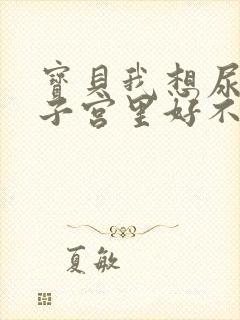 寶貝我想尿
子宮里好不
夏敏